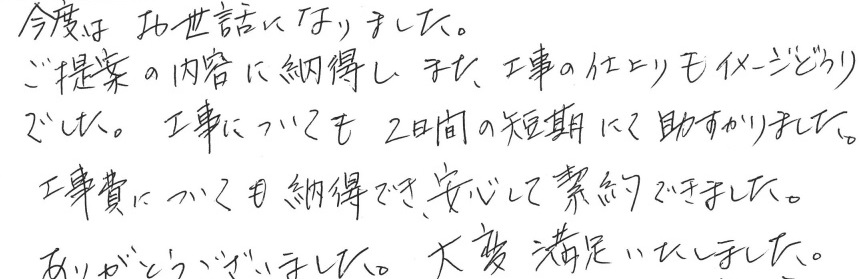 今度は お世話になりました。
ご提案の内容に納得し また、工事の仕上りもイメージどうり
でした。 工事についても 2日間の短期にて助すかりました。
工事費についても納得でき、安心して契約できました。
ありがとうございました。 大変 満足いたしました。